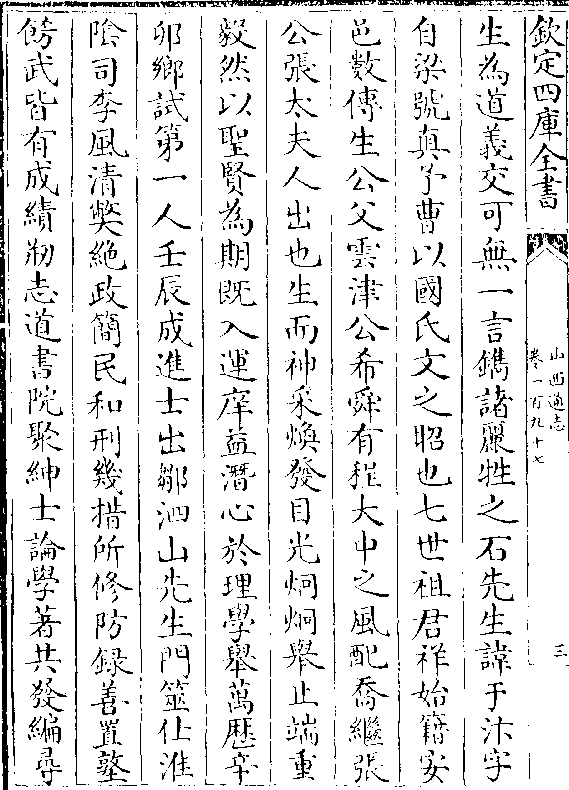 欽定四庫全書
山西通志
卷一百九十七
三
生為道義交可無一言鐫諸麗牲之石先生諱于汴字
自梁號真予曹以國氏文之昭也七世祖君祥始籍安
邑數傳生公父雲津公希舜有程大中之風配喬繼張
公張太夫人出也生而神采煥發目光炯炯舉止端重
毅然以聖賢為期既入運庠益潛心於理學舉萬歷辛
卯鄉試第一人壬辰成進士出鄒泗山先生門筮仕淮
陰司李風清獘絶政簡民和刑幾措所修防録善置塾
餝武皆有成績剏志道書院聚紳士論學著共發編尋